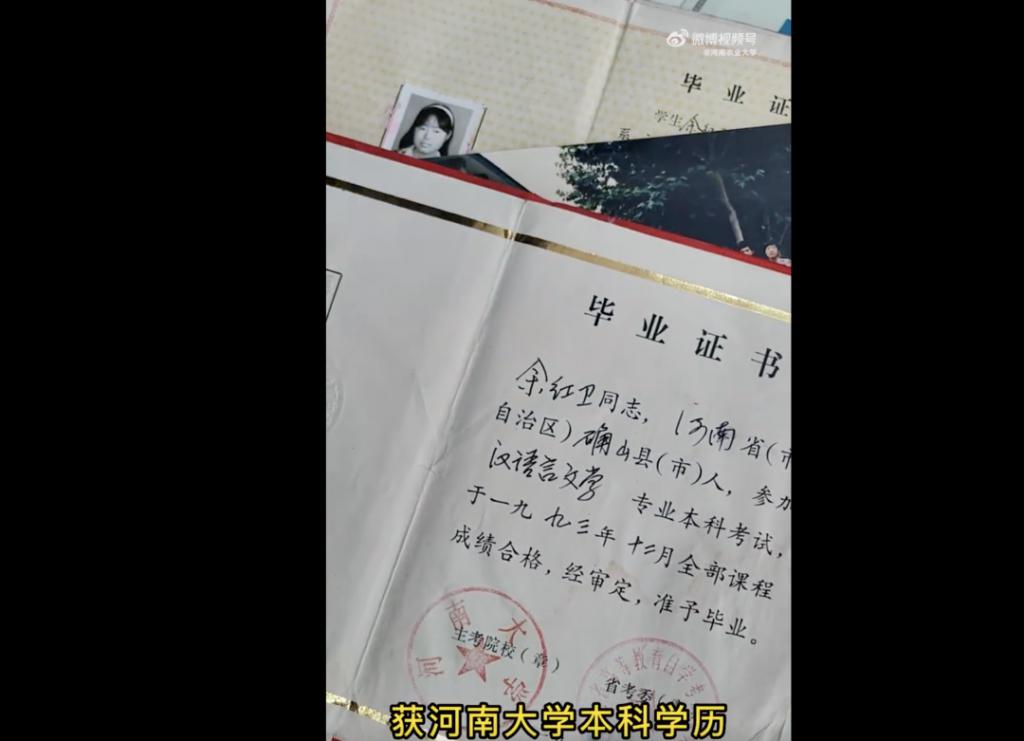 微博视频号
@河南农业大学
毕业证
学生余红
系
毕业证书
余红卫同志，河南省（市
自治区）确山县（市）人，参加
汉语言文学 专业本科考试，
于一九九三年十二月全部课程
成绩合格，经审定，准予毕业。
河南大学
主考院校（章）
高等教育自学考
省考委（
获河南大学本科学历